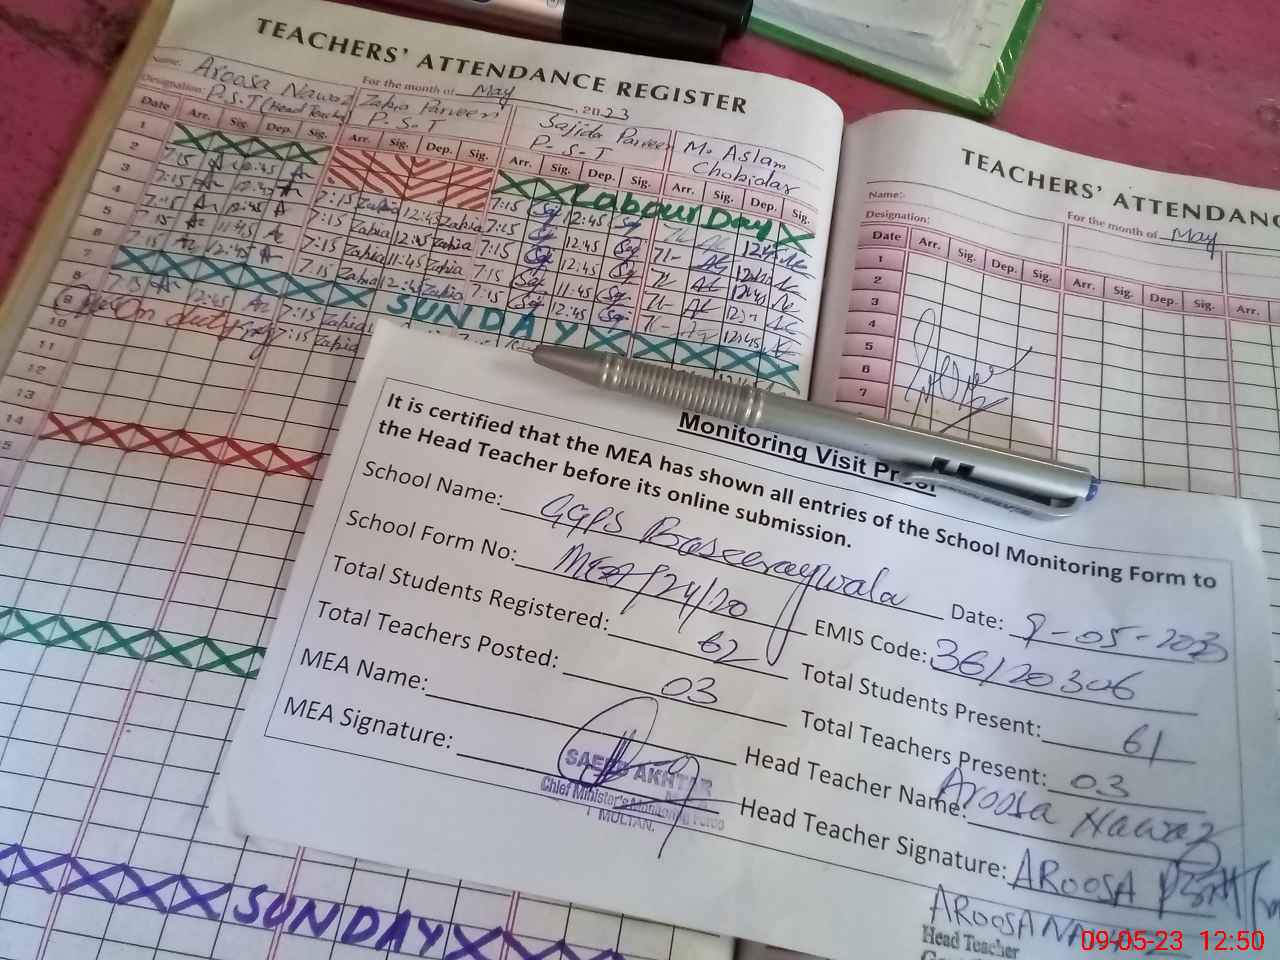 TEACHERS' ATTENDANCE REGISTER
Name: Aroosa Nawaz For the month of May, 2023
Designation: P.S.T (Head Teacher) Zahia Parveen P.S.T Sajida Parveen P.S.T M. Aslam Chokidar
Date Arr. Sig. Dep. Sig. Arr. Sig. Dep. Sig. Arr. Sig. Dep. Sig. Arr. Sig. Dep. Sig.
1 Labour Day
2 7:15 12:45 7:15 Zahia 12:45 Zahia 7:15 12:45
3 7:15 12:45 7:15 Zahia 12:45 Zahia 7:15 12:45
4 7:15 12:45 7:15 Zahia 12:45 Zahia 7:15 12:45
5 7:15 11:45 7:15 Zahia 11:45 Zahia 7:15 11:45
6 7:15 12:45 7:15 Zahia 12:45 Zahia 7:15 12:45
7 SUNDAY
8 7:15 12:45 7:15 Zahia
9 On duty 7:15 Zahia
10
11
12
13
14
15
SUNDAY
TEACHERS' ATTENDANC
Name:
Designation: For the month of May
Date Arr. Sig. Dep. Sig. Arr. Sig. Dep. Sig. Arr.
1
2
3
4
5
6
7
Monitoring Visit Proof
It is certified that the MEA has shown all entries of the School Monitoring Form to
the Head Teacher before its online submission.
School Name: GGPS Baseeraywala Date: 9-05-2023
School Form No: MEA/24/20 EMIS Code: 36120306
Total Students Registered: 62 Total Students Present: 61
Total Teachers Posted: 03 Total Teachers Present: 03
MEA Name: Head Teacher Name: Aroosa Nawaz
MEA Signature: Head Teacher Signature: AROOSA
SAEED AKHTAR
Chief Minister's Monitoring Force
MULTAN.
AROOSA NAWAZ
Head Teacher
09-05-23 12:50